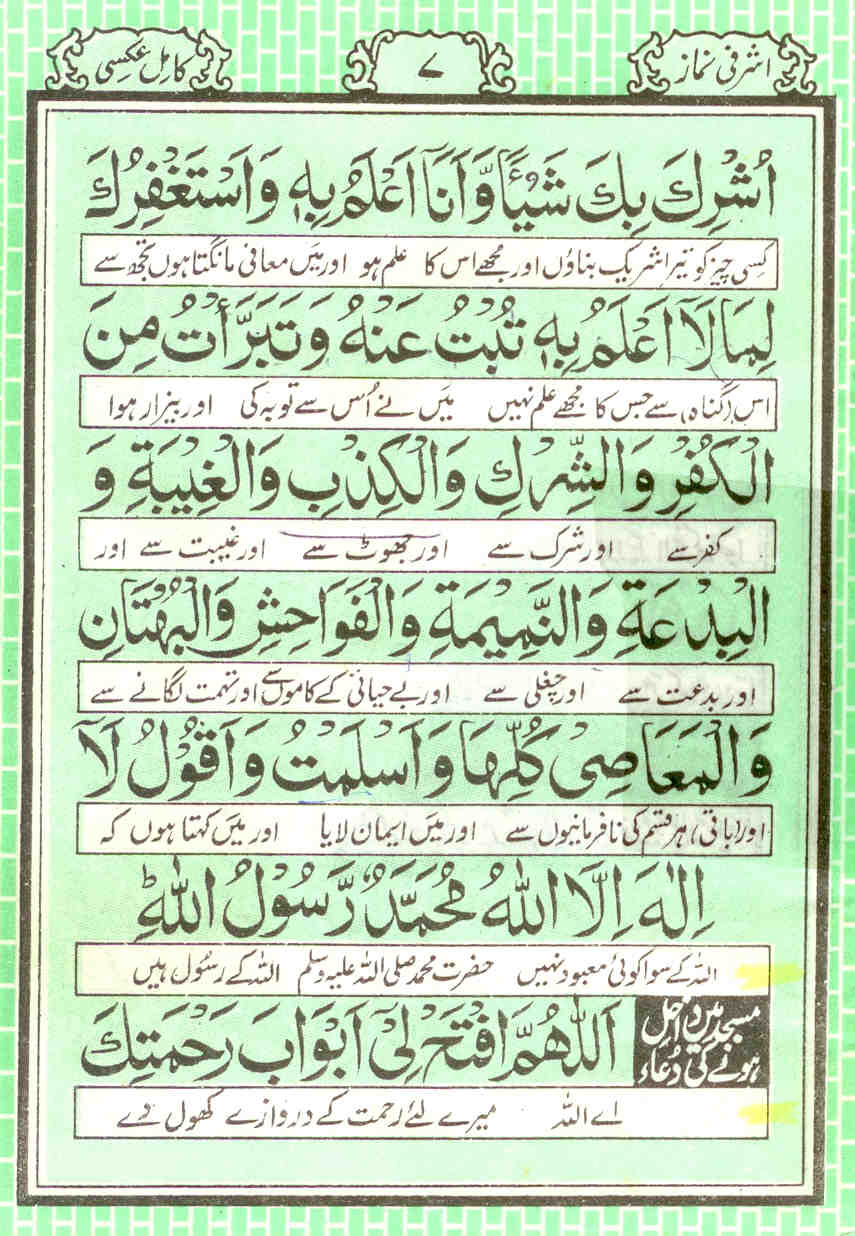 اشرفی نماز
۷
کامِل عکسی
اُشْرِكَ بِكَ شَيْأً وَّاَنَا اَعْلَمُ بِهٖ وَاَسْتَغْفِرُكَ
کِسی چیز کو تیرا شریک بناؤں اور مجھے اس کا علم ہو اور میں معافی مانگتا ہوں تجھ سے
لِمَا لَآ اَعْلَمُ بِهٖ تُبْتُ عَنْهُ وَتَبَرَّأْتُ مِنَ
اس (گناہ) سے جس کا مجھے علم نہیں میں نے اُس سے توبہ کی اور بیزار ہوا
الْكُفْرِ وَالشِّرْكِ وَالْكِذْبِ وَالْغِيْبَةِ وَ
کفر سے اور شرک سے اور جھوٹ سے اور غیبت سے اور
الْبِدْعَةِ وَالنَّمِيْمَةِ وَالْفَوَاحِشِ وَالْبُهْتَانِ
اور بدعت سے اور چغلی سے اور بے حیائی کے کاموں سے اور تہمت لگانے سے
وَالْمَعَاصِىْ كُلِّهَا وَاَسْلَمْتُ وَاَقُوْلُ لَآ
اور (باقی) ہر قسم کی نافرمانیوں سے اور میں ایمان لایا اور میں کہتا ہوں کہ
اِلٰهَ اِلَّا اللّٰهُ مُحَمَّدٌ رَّسُوْلُ اللّٰهِؕ
اللہ کے سوا کوئی معبود نہیں حضرت محمد صلی اللہ علیہ وسلم اللہ کے رسُول ہیں
مسجد میں داخِل
ہونے کی دُعاء
اَللّٰهُمَّ افْتَحْ لِىْٓ اَبْوَابَ رَحْمَتِكَ
اے اللہ میرے لئے رحمت کے دروازے کھول دے